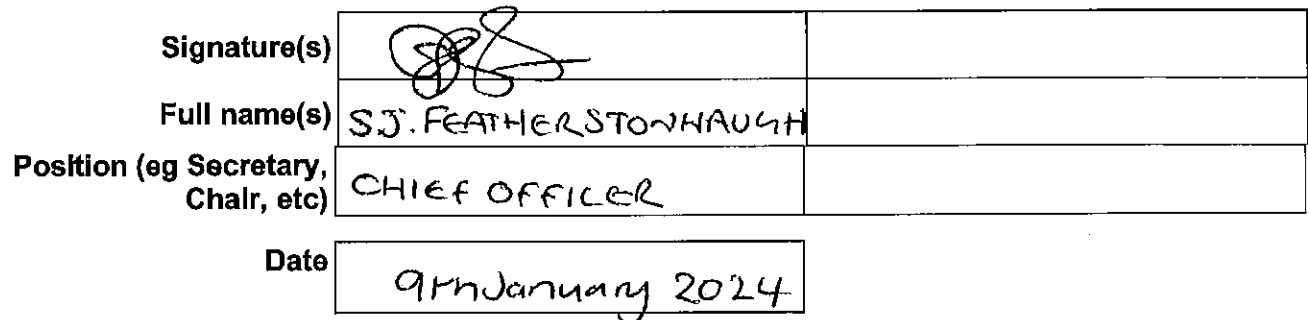 Signature(s)
Full name(s) S.J. FEATHERSTONHAUGH
Position (eg Secretary, CHIEF OFFICER
Chair, etc)
Date 9th January 2024